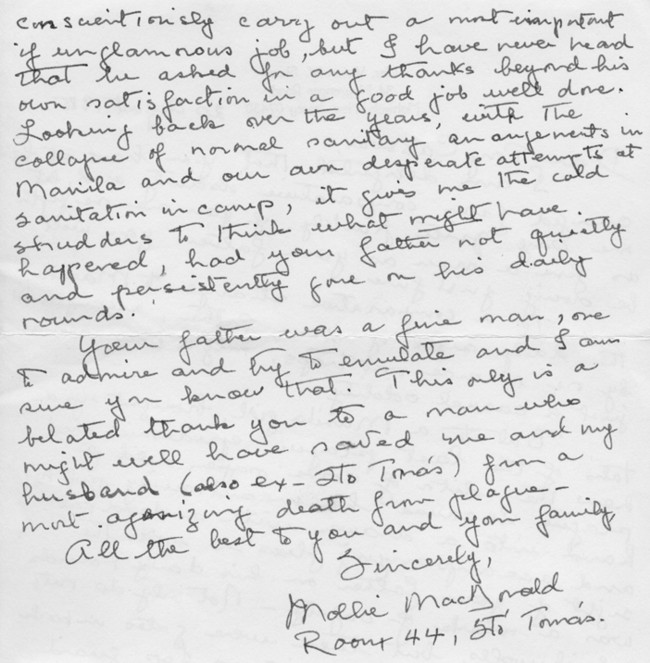 conscientiously carry out a most important
if unglamorous job, but I have never heard
that he asked for any thanks beyond his
own satisfaction in a good job well done.
Looking back over the years, with the
collapse of normal sanitary arrangements in
Manila and our own desperate attempts at
sanitation in camp, it gives me the cold
shudders to think what might have
happened, had your father not quietly
and persistently gone on his daily
rounds.
Your father was a fine man, one
to admire and try to emulate and I am
sure you know that. This only is a
belated thank you to a man who
might well have saved me and my
husband (also ex-Sto Tomás) from a
most agonizing death from plague—
All the best to you and your family
Sincerely,
Mollie MacDonald
Room 44, Sto Tomás.